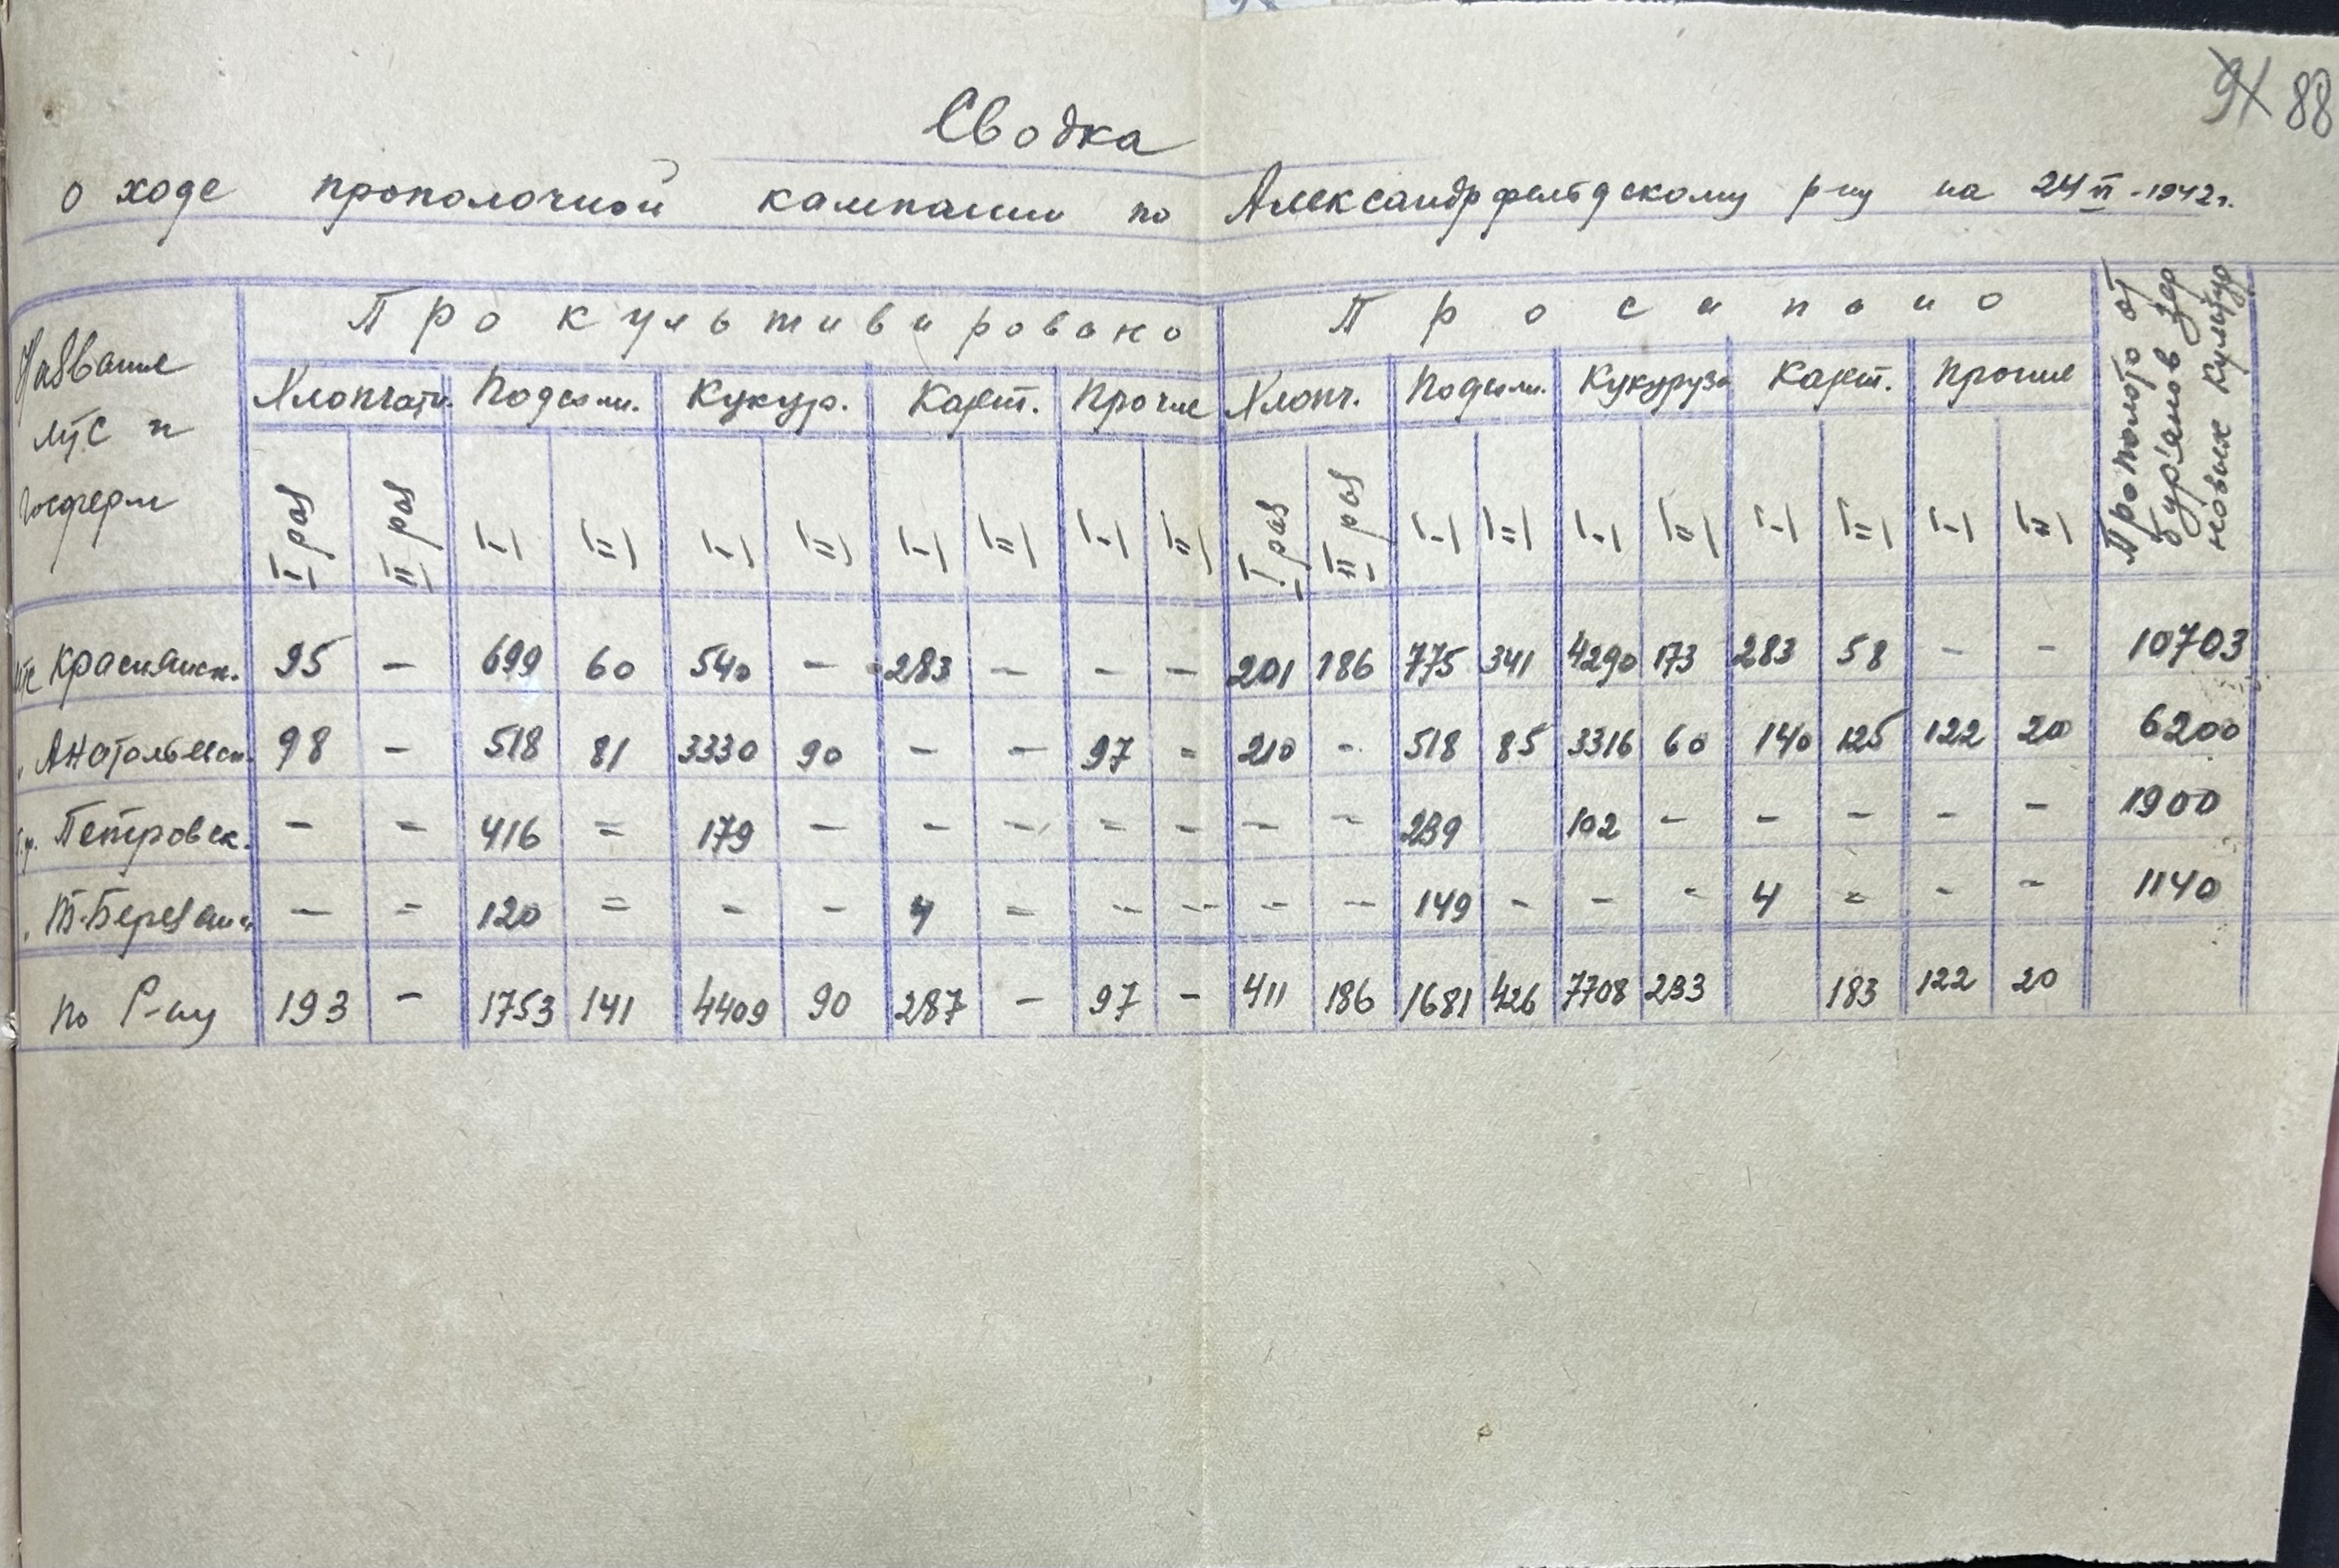 91 88
Сводка
о ходе прополочной кампании по Александрфельдскому р-ну на 24 VI-1942г.
Название МТС и госферм | Прокультивировано | Просапано | Прополото от бур'янов зерновых культур
Хлопчатн. | Подсолн. | Кукур. | Карт. | Прочие | Хлопч. | Подсолн. | Кукуруза | Карт. | Прочие
I раз | II раз | I-| | II-| | I-| | II-| | I-| | II-| | I-| | II-| | I раз | II раз | I-| | II-| | I-| | II-| | I-| | II-| | I-| | II-|
МТС Краснянск. | 95 | - | 699 | 60 | 540 | - | 283 | - | - | - | 201 | 186 | 775 | 341 | 4290 | 173 | 283 | 58 | - | - | 10703
" Анатольевск. | 98 | - | 518 | 81 | 3330 | 90 | - | - | 97 | - | 210 | - | 518 | 85 | 3316 | 60 | 140 | 125 | 122 | 20 | 6200
Г.ф. Петровск. | - | - | 416 | = | 179 | - | - | - | - | - | - | - | 239 | | 102 | - | - | - | - | - | 1900
" Т-Березанск. | - | = | 120 | = | - | - | 4 | - | - | - | - | - | 149 | - | - | - | 4 | = | - | - | 1140
по Р-ну | 193 | - | 1753 | 141 | 4409 | 90 | 287 | - | 97 | - | 411 | 186 | 1681 | 426 | 7708 | 233 | | 183 | 122 | 20